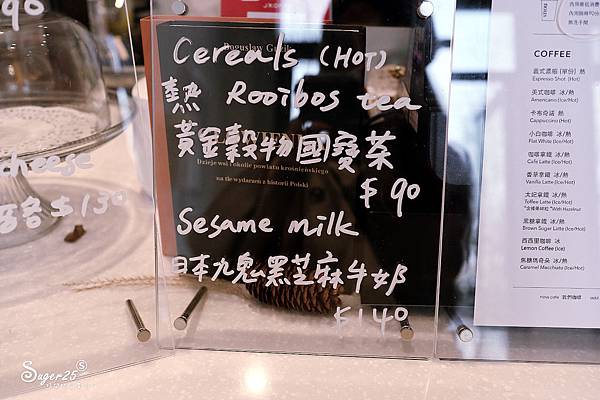 90
cheese
酪 $130
Cereals (HOT)
熱 Rooibos tea
黃金穀物國寶茶
$90
Sesame milk
日本九鬼黑芝麻牛奶
$140
Bogusław Gu
Dzieje wsi i okolic powiatu krośnieńskiego
na tle wydarzeń z historii Polski
COFFEE
義式濃縮 (單份) 熱
Espresso Shot (Hot)
美式咖啡 冰/熱
Americano (Ice/Hot)
卡布奇諾 熱
Cappuccino (Hot)
小白咖啡 冰/熱
Flat White (Ice/Hot)
咖啡拿鐵 冰/熱
Cafe Latte (Ice/Hot)
香草拿鐵 冰/熱
Vanilla Latte (Ice/Hot)
太妃拿鐵 冰/熱
Toffee Latte (Ice/Hot)
*含榛果碎粒 *With Hazelnut
黑糖拿鐵 冰/熱
Brown Sugar Latte (Ice/Hot)
西西里咖啡 冰
Lemon Coffee (Ice)
焦糖瑪奇朵 冰/熱
Caramel Macchiato (Ice/Hot)
我們咖啡
Suger25